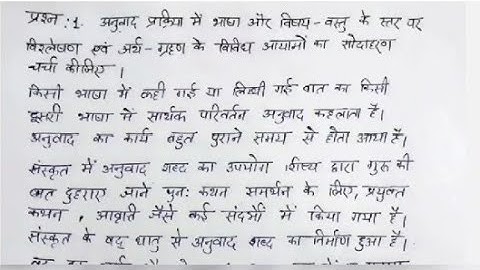 प्रश्न:1. अनुवाद प्रक्रिया में भाषा और विषय-वस्तु के स्तर पर
विश्लेषण एवं अर्थ-ग्रहण के विविध आयामों का सोदाहरण
चर्चा कीजिए।
किसी भाषा में कही गई या लिखी गई बात का किसी
दूसरी भाषा में सार्थक परिवर्तन अनुवाद कहलाता है।
अनुवाद का कार्य बहुत पुराने समय से होता आया है।
संस्कृत में अनुवाद शब्द का उपयोग शिष्य द्वारा गुरु की
बात दुहराए जाने पुनः कथन समर्थन के लिए, प्रयुक्त
कथन, आवृति जैसे कई संदर्भों में किया गया है।
संस्कृत के वद् धातु से अनुवाद शब्द का निर्माण हुआ है।